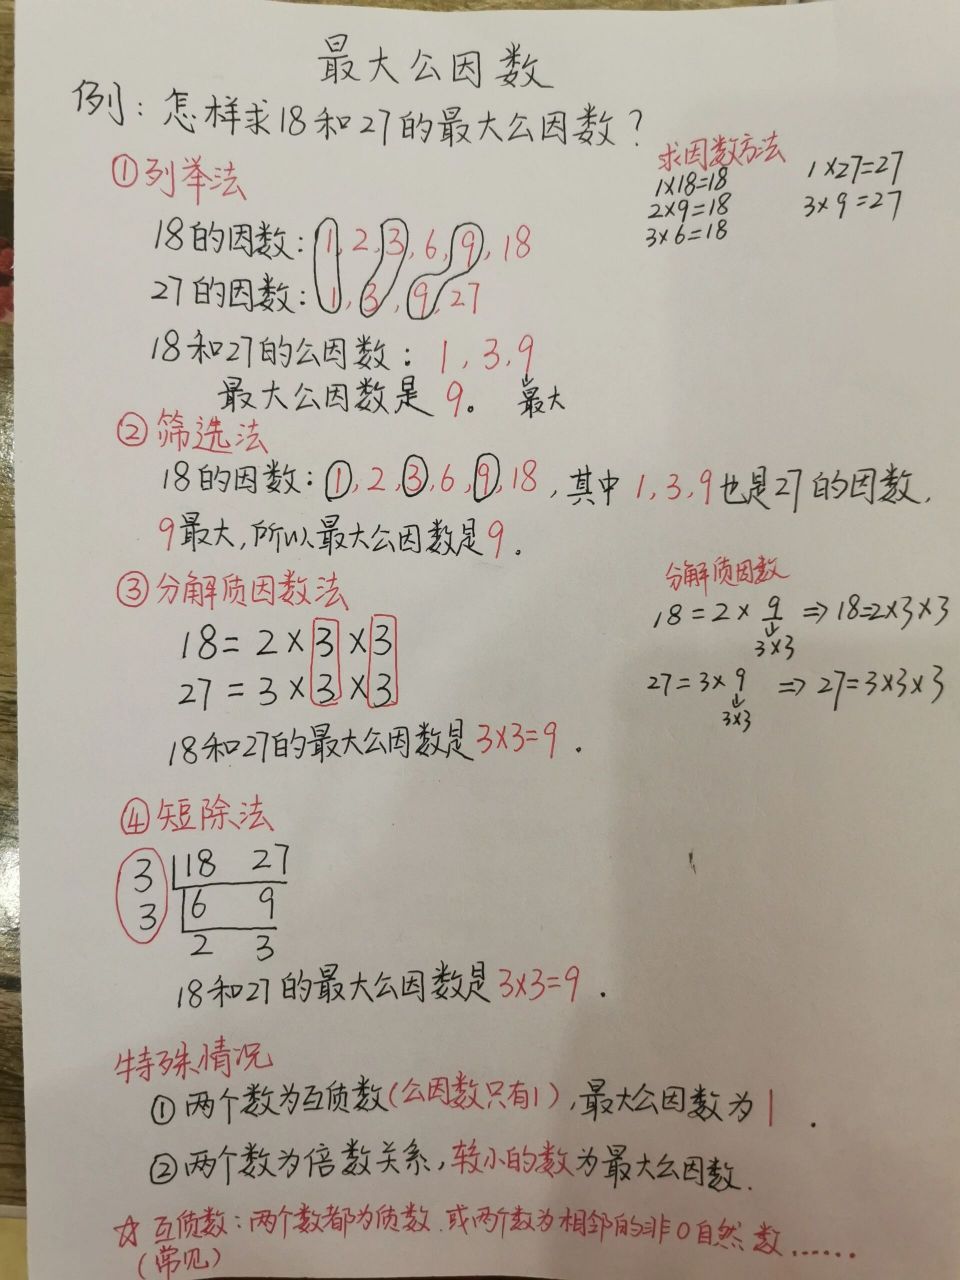 最大公因数
例：怎样求18和27的最大公因数？
①列举法
求因数方法
1×18=18
2×9=18
3×6=18
1×27=27
3×9=27
18的因数：1,2,3,6,9,18
27的因数：1,3,9,27
18和27的公因数：1,3,9
最大公因数是9。
↓最大
②筛选法
18的因数：①,2,③,6,⑨,18，其中1,3,9也是27的因数，
9最大，所以最大公因数是9．
③分解质因数法
18=2×3×3
27=3×3×3
18和27的最大公因数是3×3=9．
分解质因数
18=2×9⇒18=2×3×3
↓
3×3
27=3×9⇒27=3×3×3
↓
3×3
④短除法
3 18 27
3 6 9
2 3
18和27的最大公因数是3×3=9．
特殊情况
①两个数为互质数(公因数只有1)，最大公因数为1．
②两个数为倍数关系，较小的数为最大公因数．
☆互质数：两个数都为质数．或两个数为相邻的非0自然数……
(常见)